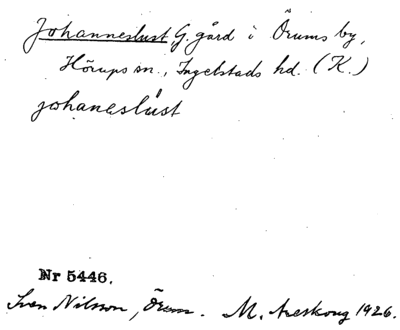 Johanneslust, G. gård i Örums by,
Hörups sn., Ingelstads hd. (K.)
johaneslùst
Nr 5446.
Sven Nilsson, Örum. M. Areskoug 1926.